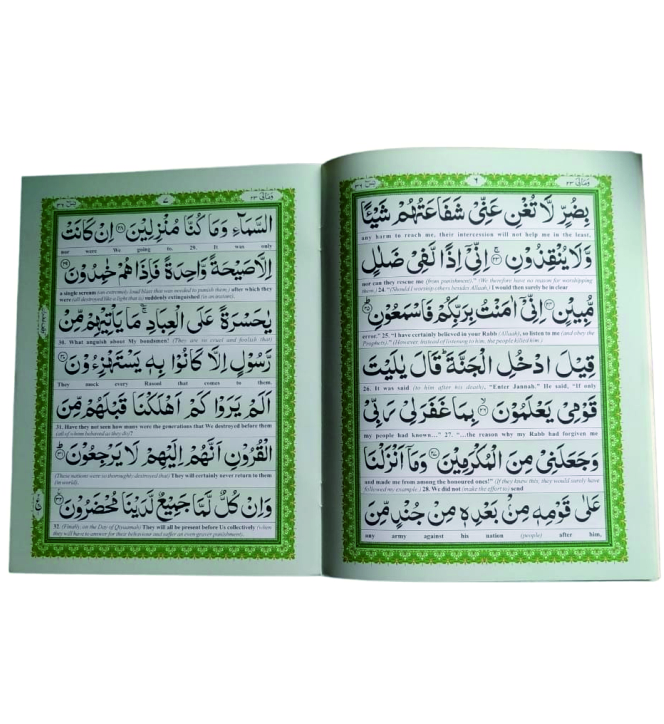 وَمَالِیَ ٢٣
٦
یٰسٓ ٣٦
بِضُرٍّ لَّا تُغْنِ عَنِّیْ شَفَاعَتُهُمْ شَیْئًا
any harm to reach me, their intercession will not help me in the least,
وَّلَا یُنْقِذُوْنِ ۚ ٢٣ اِنِّیْۤ اِذًا لَّفِیْ ضَلٰلٍ
nor can they rescue me (from punishment)." (We therefore have no reason for worshipping
them.) 24. "(Should I worship others besides Allaah,) I would then surely be in clear
مُّبِیْنٍ ٢٤ اِنِّیْۤ اٰمَنْتُ بِرَبِّكُمْ فَاسْمَعُوْنِ ٢٥
error." 25. "I have certainly believed in your Rabb (Allaah), so listen to me (and obey the
Prophets)." (However, instead of listening to him, the people killed him.)
قِیْلَ ادْخُلِ الْجَنَّةَ ؕ قَالَ یٰلَیْتَ
26. It was said (to him after his death), "Enter Jannah." He said, "If only
قَوْمِیْ یَعْلَمُوْنَ ٢٦ بِمَا غَفَرَلِیْ رَبِّیْ
my people had known..." 27. "...the reason why my Rabb had forgiven me
وَجَعَلَنِیْ مِنَ الْمُكْرَمِیْنَ ٢٧ وَمَاۤ اَنْزَلْنَا
and made me from among the honoured ones!" (If they knew this, they would surely have
followed my example.) 28. We did not (make the effort to) send
عَلٰی قَوْمِهٖ مِنْۢ بَعْدِهٖ مِنْ جُنْدٍ مِّنَ
any army against his nation (people) after him,
وَمَالِیَ ٢٣
٧
یٰسٓ ٣٦
السَّمَآءِ وَمَا كُنَّا مُنْزِلِیْنَ ٢٨ اِنْ كَانَتْ
nor were We going to. 29. It was only
اِلَّا صَیْحَةً وَّاحِدَةً فَاِذَا هُمْ خٰمِدُوْنَ ٢٩
a single scream (an extremely loud blast that was needed to punish them,) after which they
were (all destroyed like a light that is) suddenly extinguished (in an instant).
یٰحَسْرَةً عَلَی الْعِبَادِ ۚ مَا یَاْتِیْهِمْ مِّنْ
30. What anguish about My bondsmen! (They are so cruel and foolish that)
رَّسُوْلٍ اِلَّا كَانُوْا بِهٖ یَسْتَهْزِءُوْنَ ٣٠
They mock every Rasool that comes to them.
اَلَمْ یَرَوْا كَمْ اَهْلَكْنَا قَبْلَهُمْ مِّنَ
31. Have they not seen how many were the generations that We destroyed before them
(all of whom behaved as they do)?
الْقُرُوْنِ اَنَّهُمْ اِلَیْهِمْ لَا یَرْجِعُوْنَ ٣١
(These nations were so thoroughly destroyed that) They will certainly never return to them
(in world).
وَاِنْ كُلٌّ لَّمَّا جَمِیْعٌ لَّدَیْنَا مُحْضَرُوْنَ ٣٢
32. (Finally, on the Day of Qiyaamah) They will all be present before Us collectively (when
they will have to answer for their behaviour and suffer an even graver punishment).